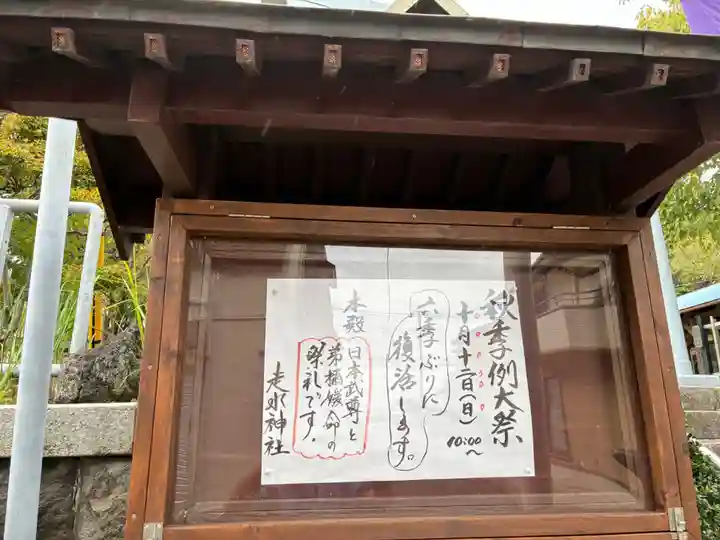 秋季例大祭
十月十二日(日)
10:00〜
六季ぶりに
復活します。
本殿
日本武尊と
弟橘媛命の
祭礼です。
走水神社